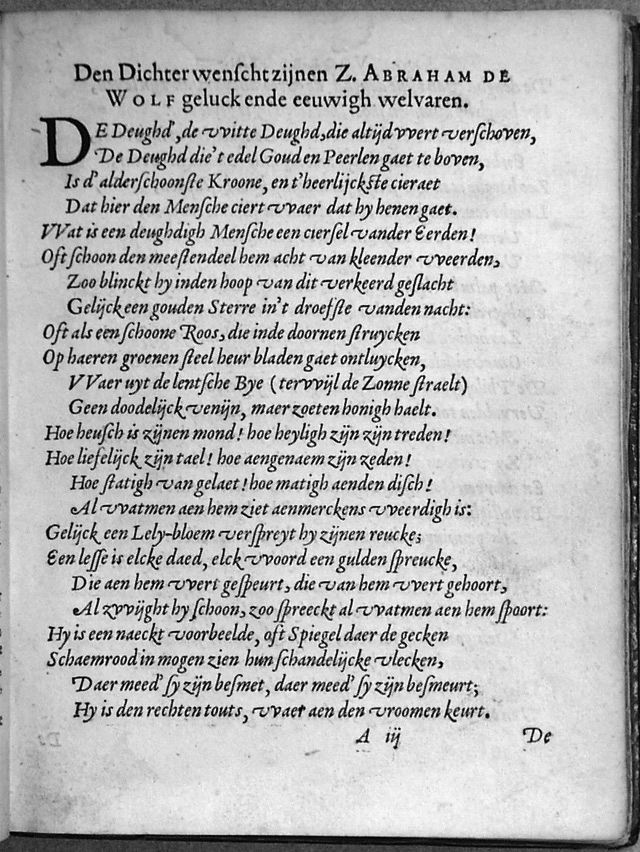 Den Dichter wenscht zijnen Z. ABRAHAM DE
WOLF geluck ende eeuwigh welvaren.
DE Deughd', de vvitte Deughd, die altijd vvert verschoven,
De Deughd die't edel Goud en Peerlen gaet te boven,
Is d'alderschoonste Kroone, en t'heerlijckste cieraet
Dat hier den Mensche ciert vvaer dat hy henen gaet.
VVat is een deughdigh Mensche een ciersel vander Eerden!
Oft schoon den meestendeel hem acht van kleender vveerden,
Zoo blinckt hy inden hoop van dit verkeerd geslacht
Gelijck een gouden Sterre in't droefste vanden nacht:
Oft als een schoone Roos, die inde doornen struycken
Op haeren groenen steel heur bladen gaet ontluycken,
VVaer uyt de lentsche Bye (tervvijl de Zonne straelt)
Geen doodelijck venijn, maer zoeten honigh haelt.
Hoe heusch is zijnen mond! hoe heyligh zijn zijn treden!
Hoe liefelijck zijn tael! hoe aengenaem zijn zeden!
Hoe statigh van gelaet! hoe matigh aenden disch!
Al vvatmen aen hem ziet aenmerckens vveerdigh is:
Gelijck een Lely-bloem verspreyt hy zijnen reucke;
Een lesse is elcke daed, elck vvoord een gulden spreucke,
Die aen hem vvert gespeurt, die van hem vvert gehoort,
Al zvvijght hy schoon, zoo spreeckt al vvatmen aen hem spoort:
Hy is een naeckt voorbeelde, oft Spiegel daer de gecken
Schaemrood in mogen zien hun schandelijcke vlecken,
Daer meed' sy zijn besmet, daer meed' sy zijn besmeurt;
Hy is den rechten touts, vvaer aen den vroomen keurt.
A iij De